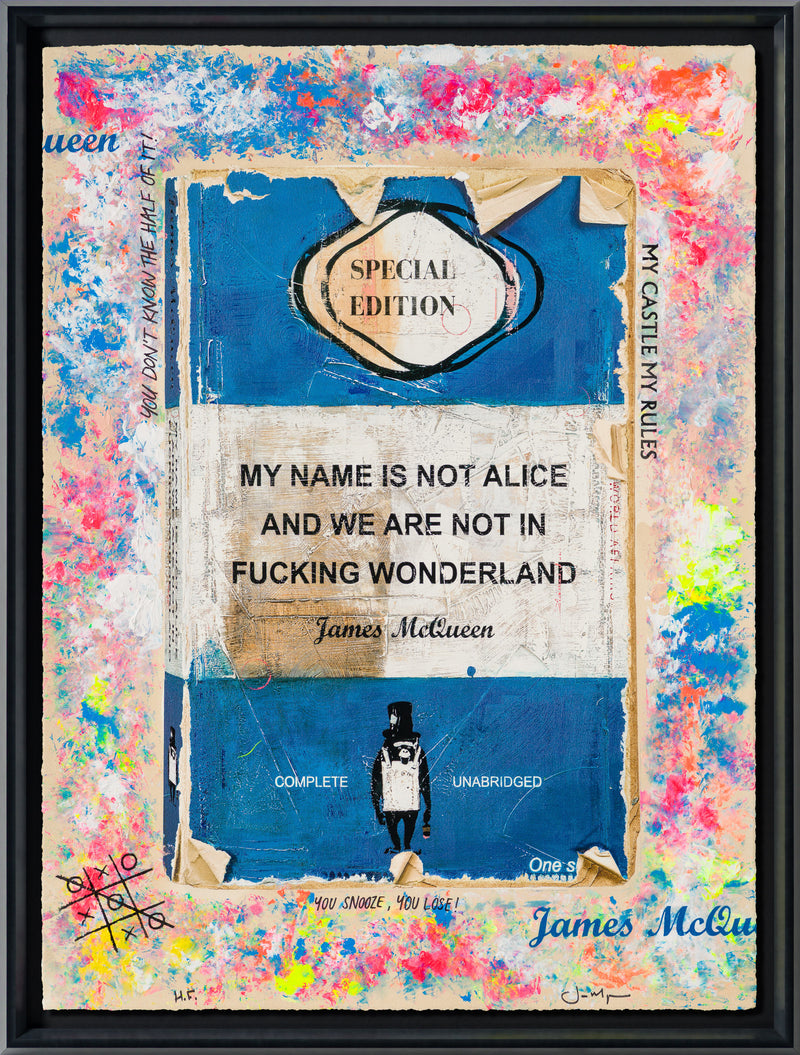 ueen
YOU DON'T KNOW THE HALF OF IT!
SPECIAL
EDITION
MY CASTLE MY RULES
MY NAME IS NOT ALICE
AND WE ARE NOT IN
FUCKING WONDERLAND
James McQueen
COMPLETE
UNABRIDGED
One s
YOU SNOOZE, YOU LOSE!
James McQue